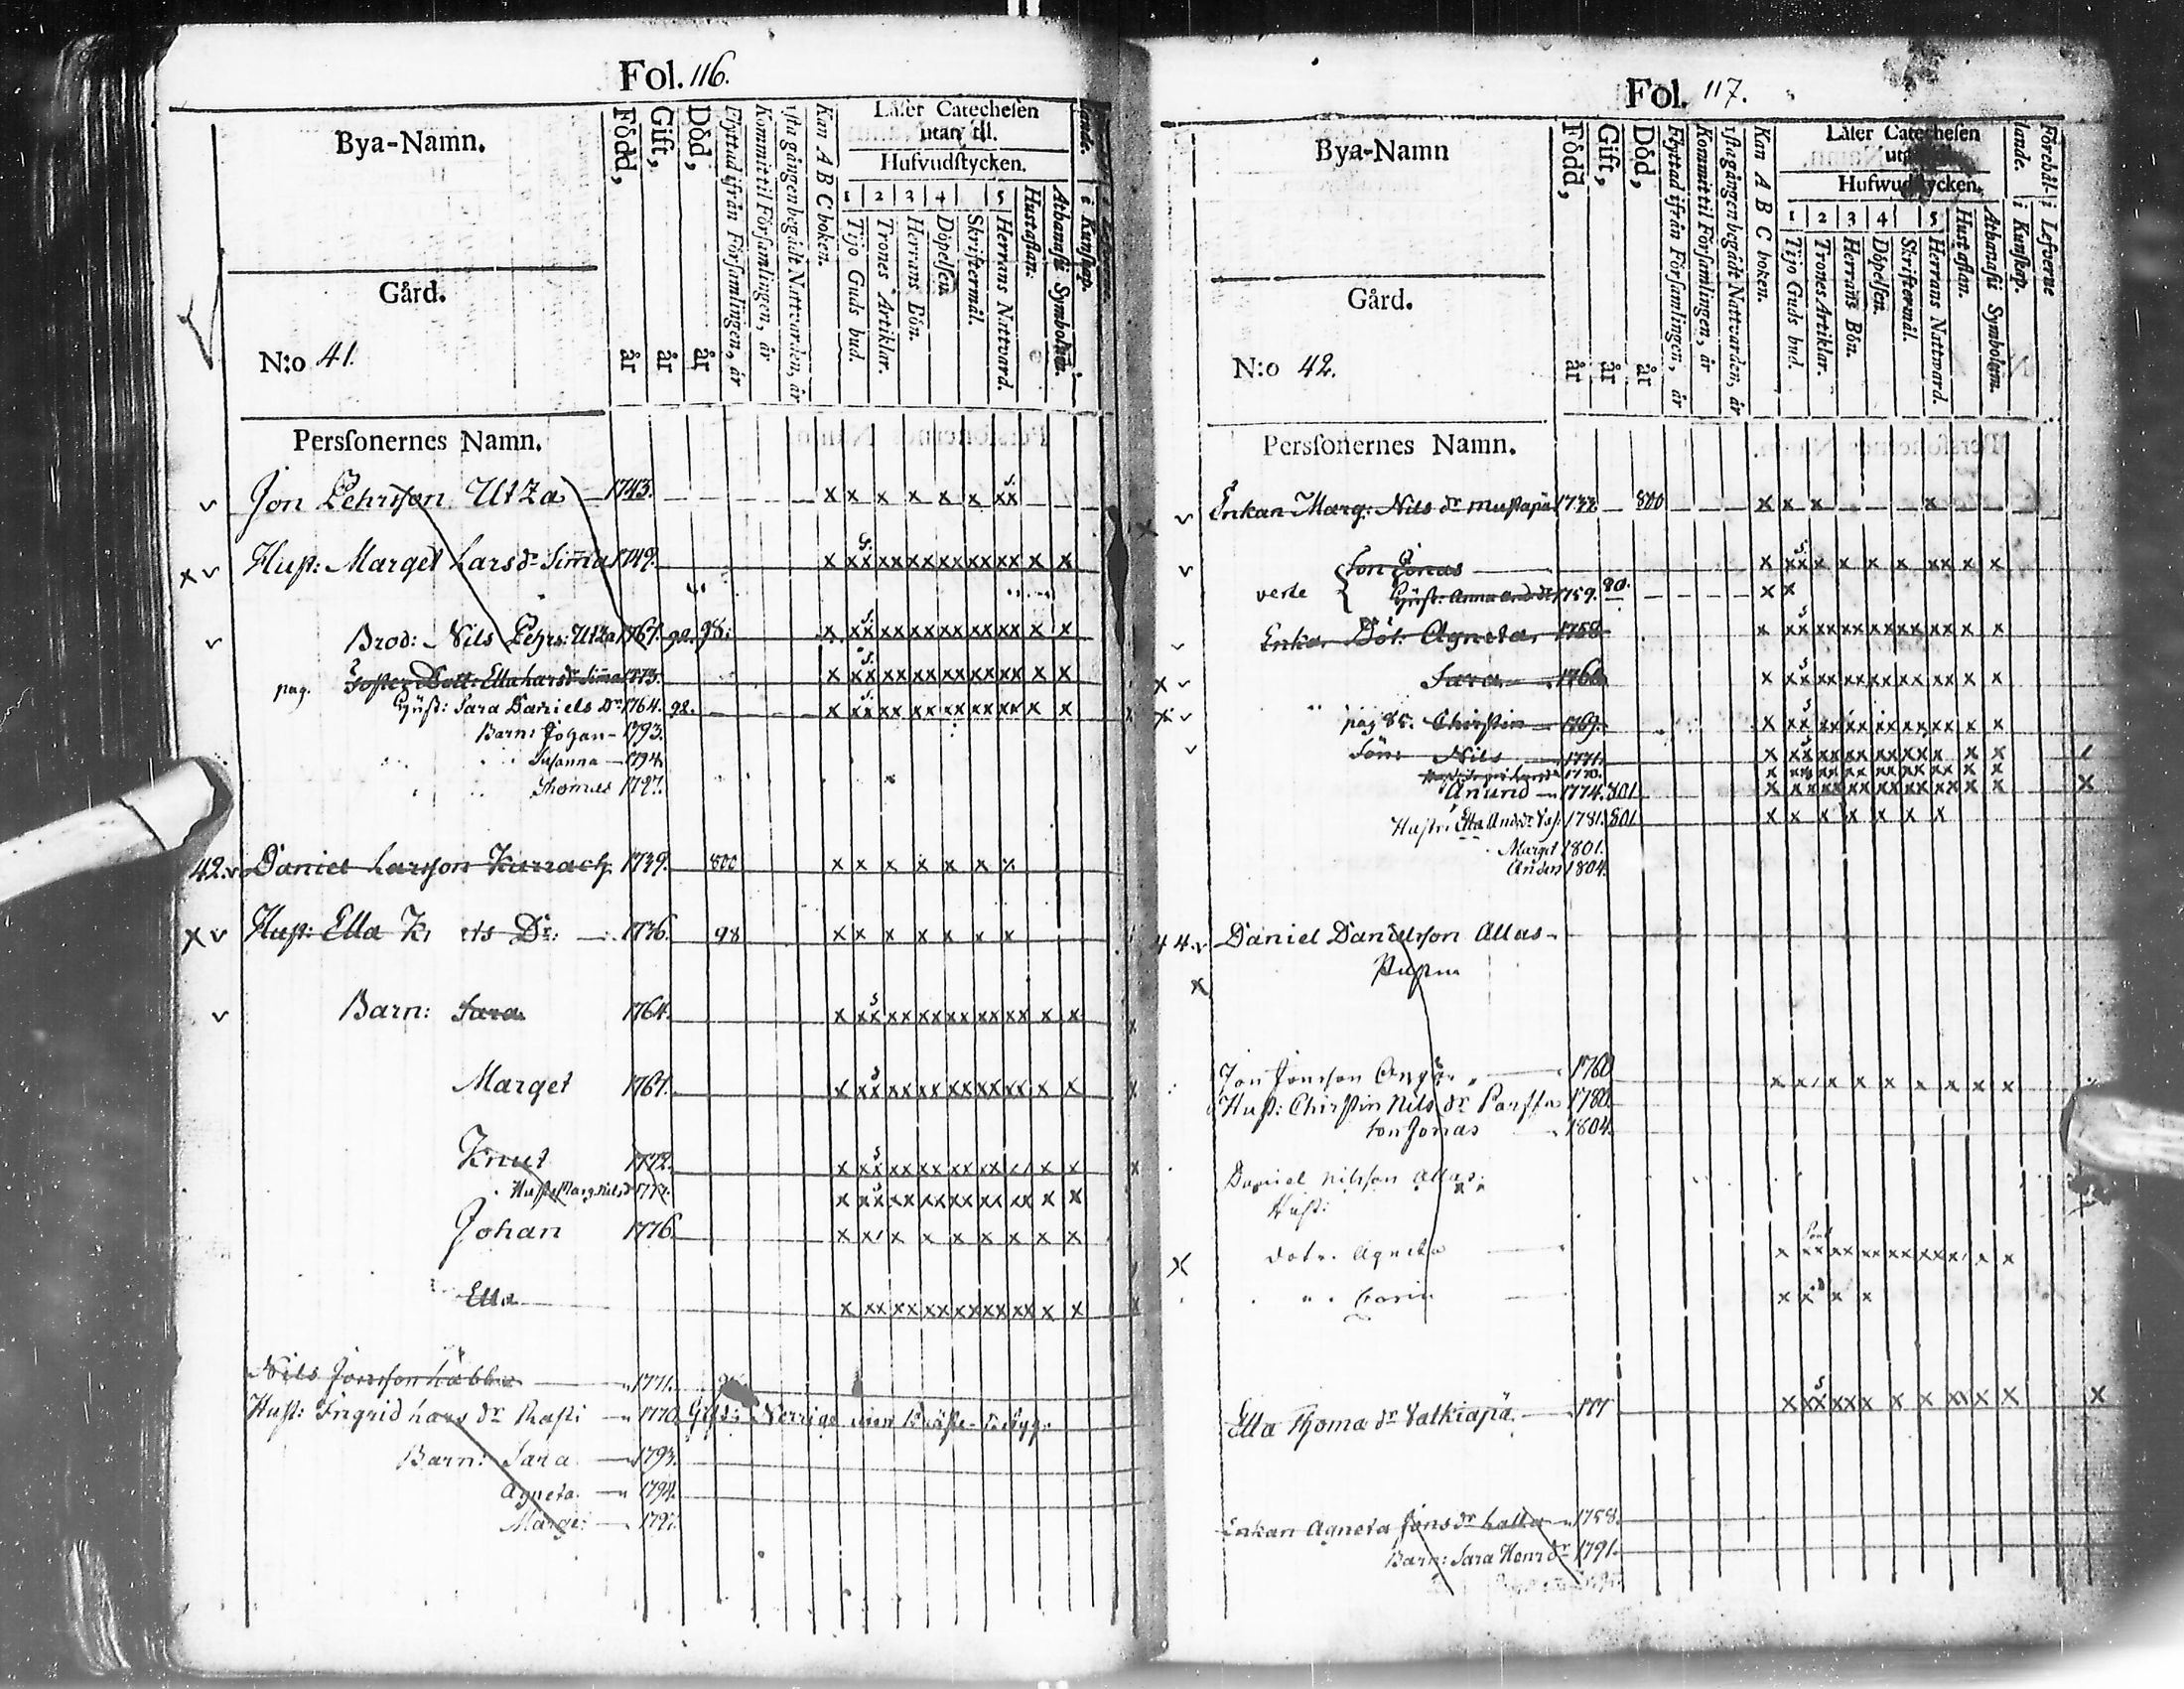 Fol. 116.
Bya-Namn.
Gård.
N:o 41.
Född, år
Gift, år
Död, år
Flyttad ifrån Församlingen, år
Kommit til Församlingen, år
1sta gången begådt Nattvarden, år
Kan A B C boken.
Läser Catechesen utan til.
Hufvudstycken.
1 2 3 4 5
Tijo Guds bud.
Trones Artiklar.
Herrans Bön.
Döpelsen.
Skriftermål.
Herrans Nattvard.
Hustaflan.
Athanasii Symbolum.
i Kunskap.
Personernes Namn.
Jon Pehrsson Utza 1743.
Hust: Marget Larsdr Simma 1749.
Brod: Nils Pehrs: Utza 1767. 92. 98.
pag. Foster Dott: Ella Larsdr Simma 1773.
Hust: Sara Daniels Dr 1764. 92.
Barn: Johan 1793.
Susanna 1794.
Thomas 1797.
42. Daniel Larsson Kurrach 1739. 800
Hust: Ella Dr. 1736. 98
Barn: Sara 1764.
Marget 1767.
Knut 1772.
Hust. Marg. Nilsdr
Johan 1776.
Ella
Nils Jonsson Labba 1771.
Hust: Ingrid Lars dr Rasti 1770.
Barn: Sara 1793.
Agneta 1794.
Marget 1797.
Fol. 117.
Bya-Namn
Gård.
N:o 42.
Född, år
Gift, år
Död, år
Flyttad ifrån Församlingen, år
Kommit til Församlingen, år
1sta gången begådt Nattvarden, år
Kan A B C boken.
Läser Catechesen
Hufwudstycken.
1 2 3 4 5
Tijo Guds bud.
Trones Artiklar.
Herrans Bön.
Döpelsen.
Skriftermål.
Herrans Nattvard.
Hustaflan.
Athanasii Symbolum.
Förehållande.
i Kunskap.
i Lefverne
Personernes Namn.
Enkan Marg: Nils dr Mustapä 800
Son Jonas
verte Hust: Anna 1759.
Enka Dot: Agneta, 1758.
Sara
pag 85. Chirstin 1769.
Son: Nils 1771.
Anund 1774. 801
Hustr: Ella And. dr 1781. 801
Marget 1801.
Anders 1804.
44. Daniel Danielsson Allas
Hustru
Jon Jonsson 1760
Hust: Chirstin Nils dr 1780.
Son Jonas 1804.
Daniel Nilsson Allas.
Hust:
Dotr. Agneta
Carin
Ella Thoma dr Valkiapä
Enkan Agneta Jons dr 1758.
Barn: Sara Henr dr 1791.